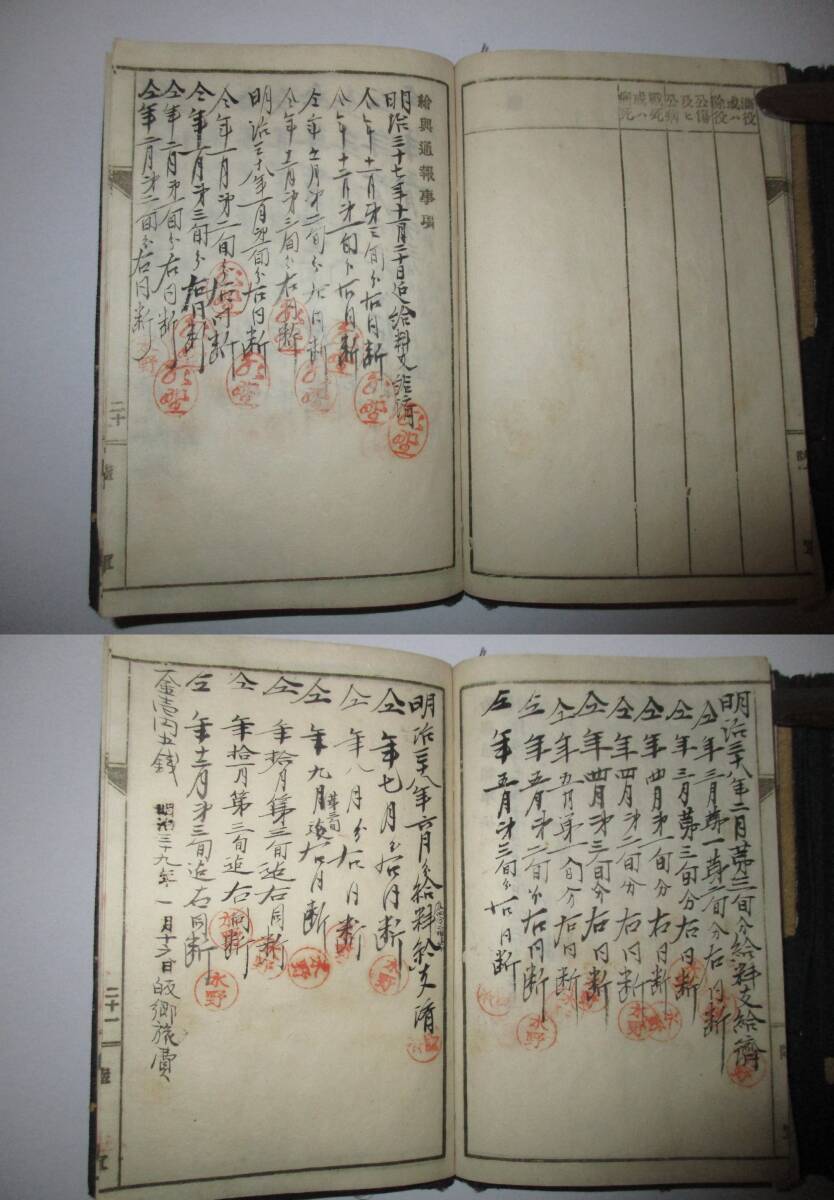 満役
或ハ
除役
公傷
及ヒ
公病
戦死
或ハ
病死
給與通報事項
明治三十七年十一月二十日迄給料支給済
仝年十一月第三旬分右同断
仝年十二月第一旬分右同断
仝年十二月第二旬分右同断
仝年十二月第三旬分右同断
明治三十八年一月第一旬分右同断
仝年一月第二旬分右同断
仝年一月第三旬分右同断
仝年二月第一旬分右同断
仝年二月第二旬分右同断
二十
陸
軍
明治三十八年二月第三旬分給料支給濟
仝年三月第一第二旬分右同断
仝年三月第三旬分右同断
仝年四月第一旬分右同断
仝年四月第二旬分右同断
仝年四月第三旬分右同断
仝年五月第一旬分右同断
仝年五月第二旬分右同断
仝年五月第三旬分右同断
水野
明治三十八年六月分給料支済
仝年七月分右同断
仝年八月分右同断
仝年九月迄右同断
仝年拾月第三旬迄右同断
仝年拾一月第三旬迄右同断
仝年十二月第三旬迄右同断
水野
一金壱円五銭 明治三十九年一月十六日帰郷旅費
二十一
陸
軍